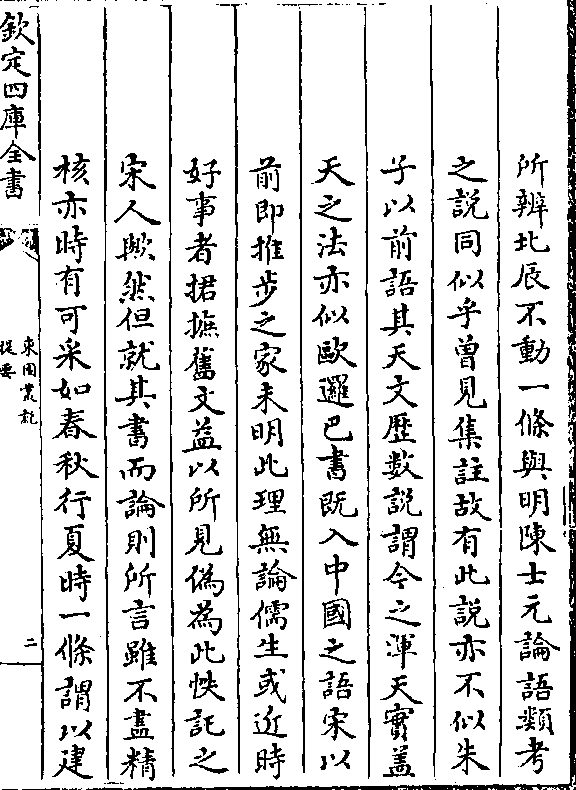 所辨北辰不動一條與明陳士元論語類考
之說同似乎曽見集註故有此說亦不似朱
子以前語其天文歴數説謂今之渾天實盖
天之法亦似歐邏巴書既入中國之語宋以
前即推步之家未明此理無論儒生或近時
好事者捃摭舊文益以所見偽為此帙託之
宋人歟然但就其書而論則所言雖不盡精
核亦時有可采如春秋行夏時一條謂以建
欽定四庫全書
東園叢說
提要
二